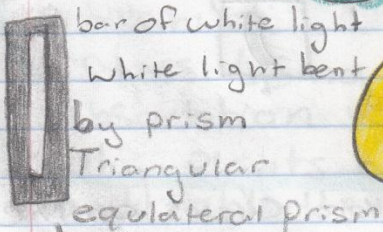 bar of white light
white light bent
by prism
Triangular
equlateral prism